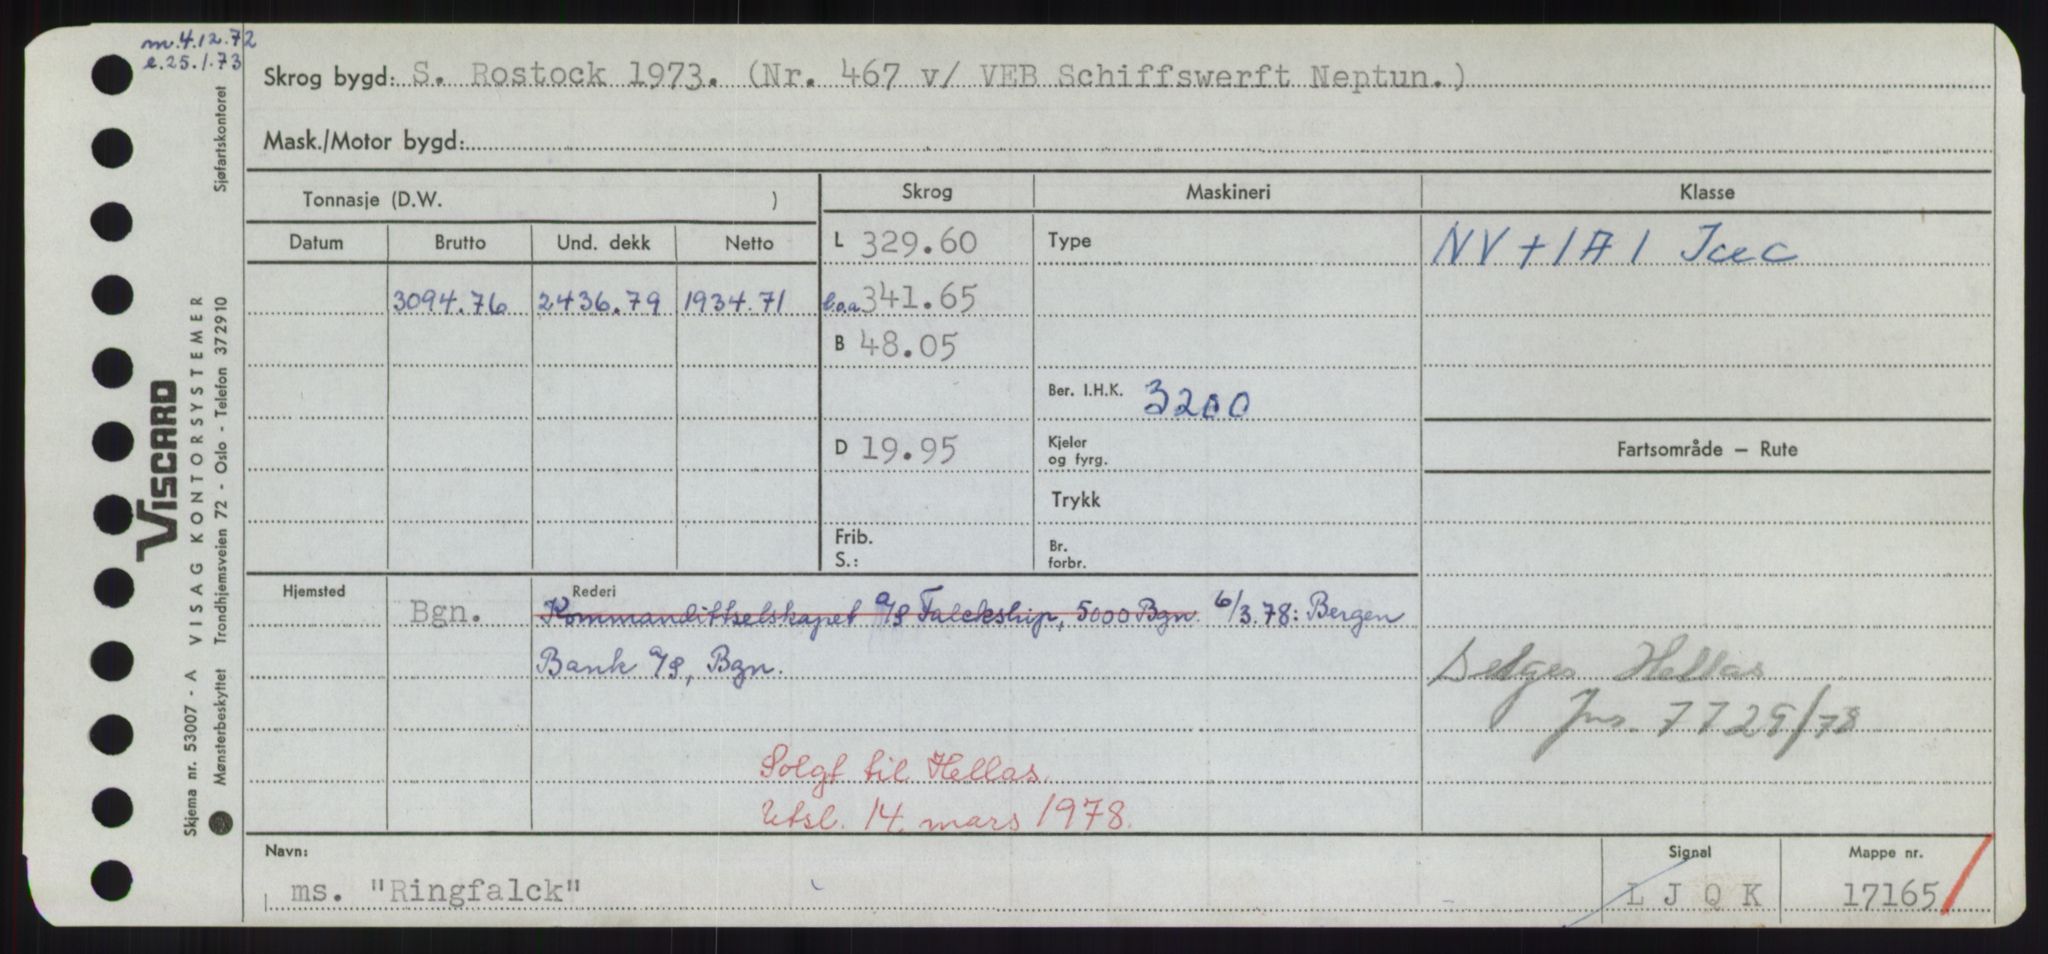 m. 4.12.72
e. 25.1.73
Skrog bygd: S. Rostock 1973. (Nr. 467 v/ VEB Schiffswerft Neptun.)
Mask./Motor bygd:
Tonnasje (D.W. )
Skrog
Maskineri
Klasse
Datum
Brutto
Und. dekk
Netto
L 329.60
Type
NV +1A1 IceC
3094.76
2436.79
1934.71
l.o.a 341.65
B 48.05
Ber. I.H.K. 3200
D 19.95
Kjeler
og fyrg.
Fartsområde — Rute
Trykk
Frib.
S.:
Br.
forbr.
Hjemsted
Rederi
Bgn.
Kommandittselskapet A/S Falckship, 5000 Bgn. 6/3.78: Bergen
Bank A/S, Bgn.
Selges Hellas
Jns. 7725/78
Solgt til Hellas.
Utsl. 14. mars 1978.
Navn:
ms. "Ringfalck"
Signal
L J Q K
Mappe nr.
17165
VISCARD
Skjema nr. 53007 - A VISAG KONTORSYSTEMER
Mønsterbeskyttet Trondhjemsveien 72 - Oslo - Telefon 372910 Sjøfartskontoret